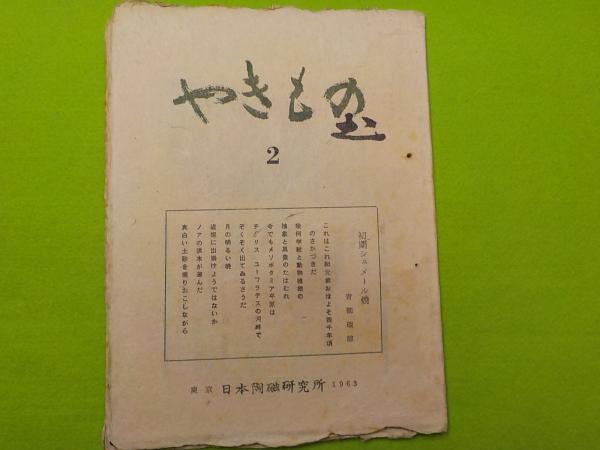 やきもの
2
初期シュメール燒
これはこれ紀元前およそ四千年頃
のさかづきだ
幾何学紋と動物模様の
抽象と具象のたはむれ
今でもメソポタミア平原は
チグリス ユーフラテスの河畔で
ぞくぞく出てゐるさうだ
月の明るい晩
盗掘に出掛けようではないか
ノアの洪水が運んだ
真白い土砂を掘りおこしながら
東京 日本陶磁研究所 1963